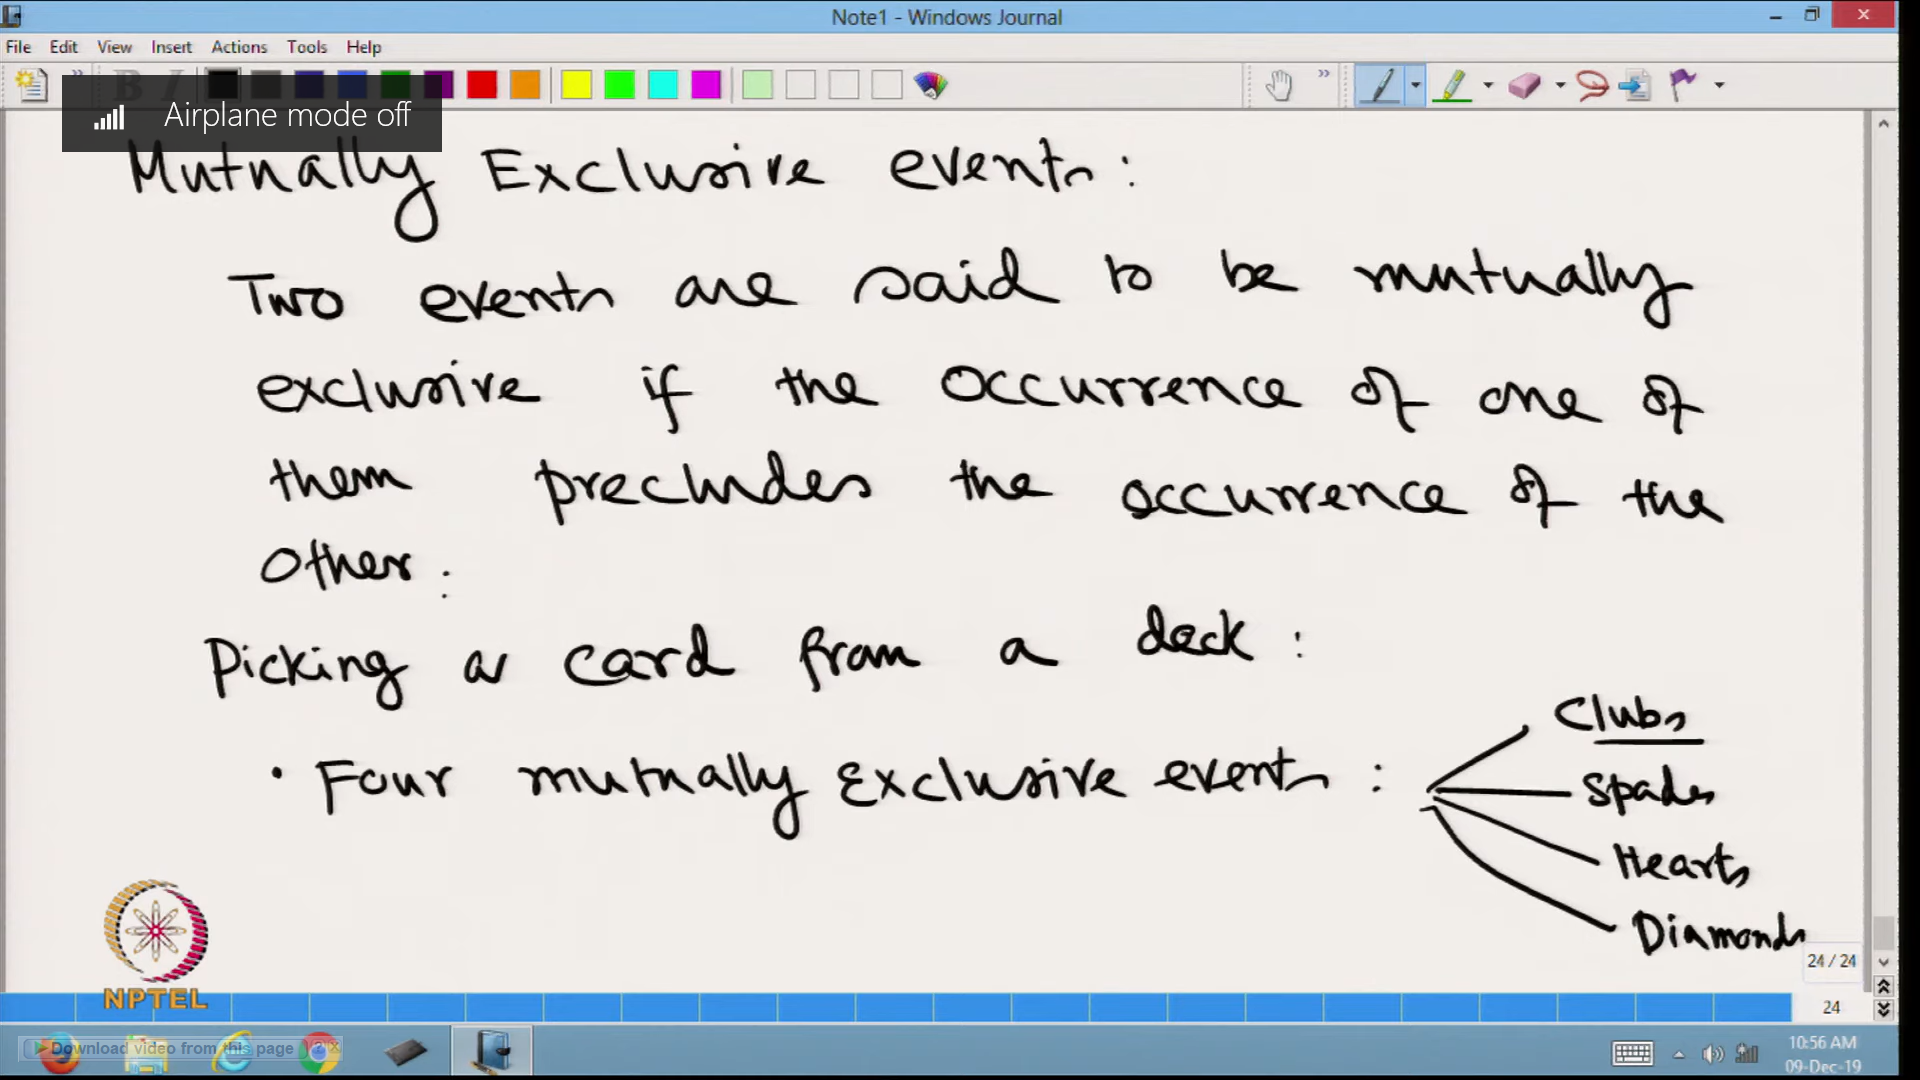 Note1 - Windows Journal
File Edit View Insert Actions Tools Help
Airplane mode off
Mutually Exclusive events :
Two events are said to be mutually
exclusive if the occurrence of one of
them precludes the occurrence of the
other.
Picking a card from a deck :
• Four mutually Exclusive events :
Clubs
Spades
Hearts
Diamonds
24 / 24
NPTEL
24
Download video from this page ? X
10:56 AM
09-Dec-19